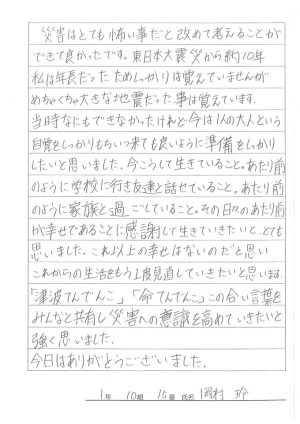 災害はとても怖い事だと改めて考えることが
できて良かったです。東日本大震災から約10年
私は年長だったためしっかりは覚えていませんが
めちゃくちゃ大きな地震だった事は覚えています。
当時なにもできなかったけれど今は1人の大人という
自覚をしっかりもちいつ来ても良いように準備をしっかり
したいと思いました。今こうして生きていること。あたり前
のように学校に行き友達と話せていること。あたり前
のように家族と過ごしていること。その日々のあたり前
が幸せであることに感謝して生きていきたいと、とても
思いました。これ以上の幸せはないのだと思い
これからの生活をもう1度見直していきたいと思います。
「津波てんでんこ」「命てんでんこ」この合い言葉を
みんなと共有し災害への意識を高めていきたいと
強く思いました。
今日はありがとうございました。
1年 10組 15番 氏名 岡村 玲